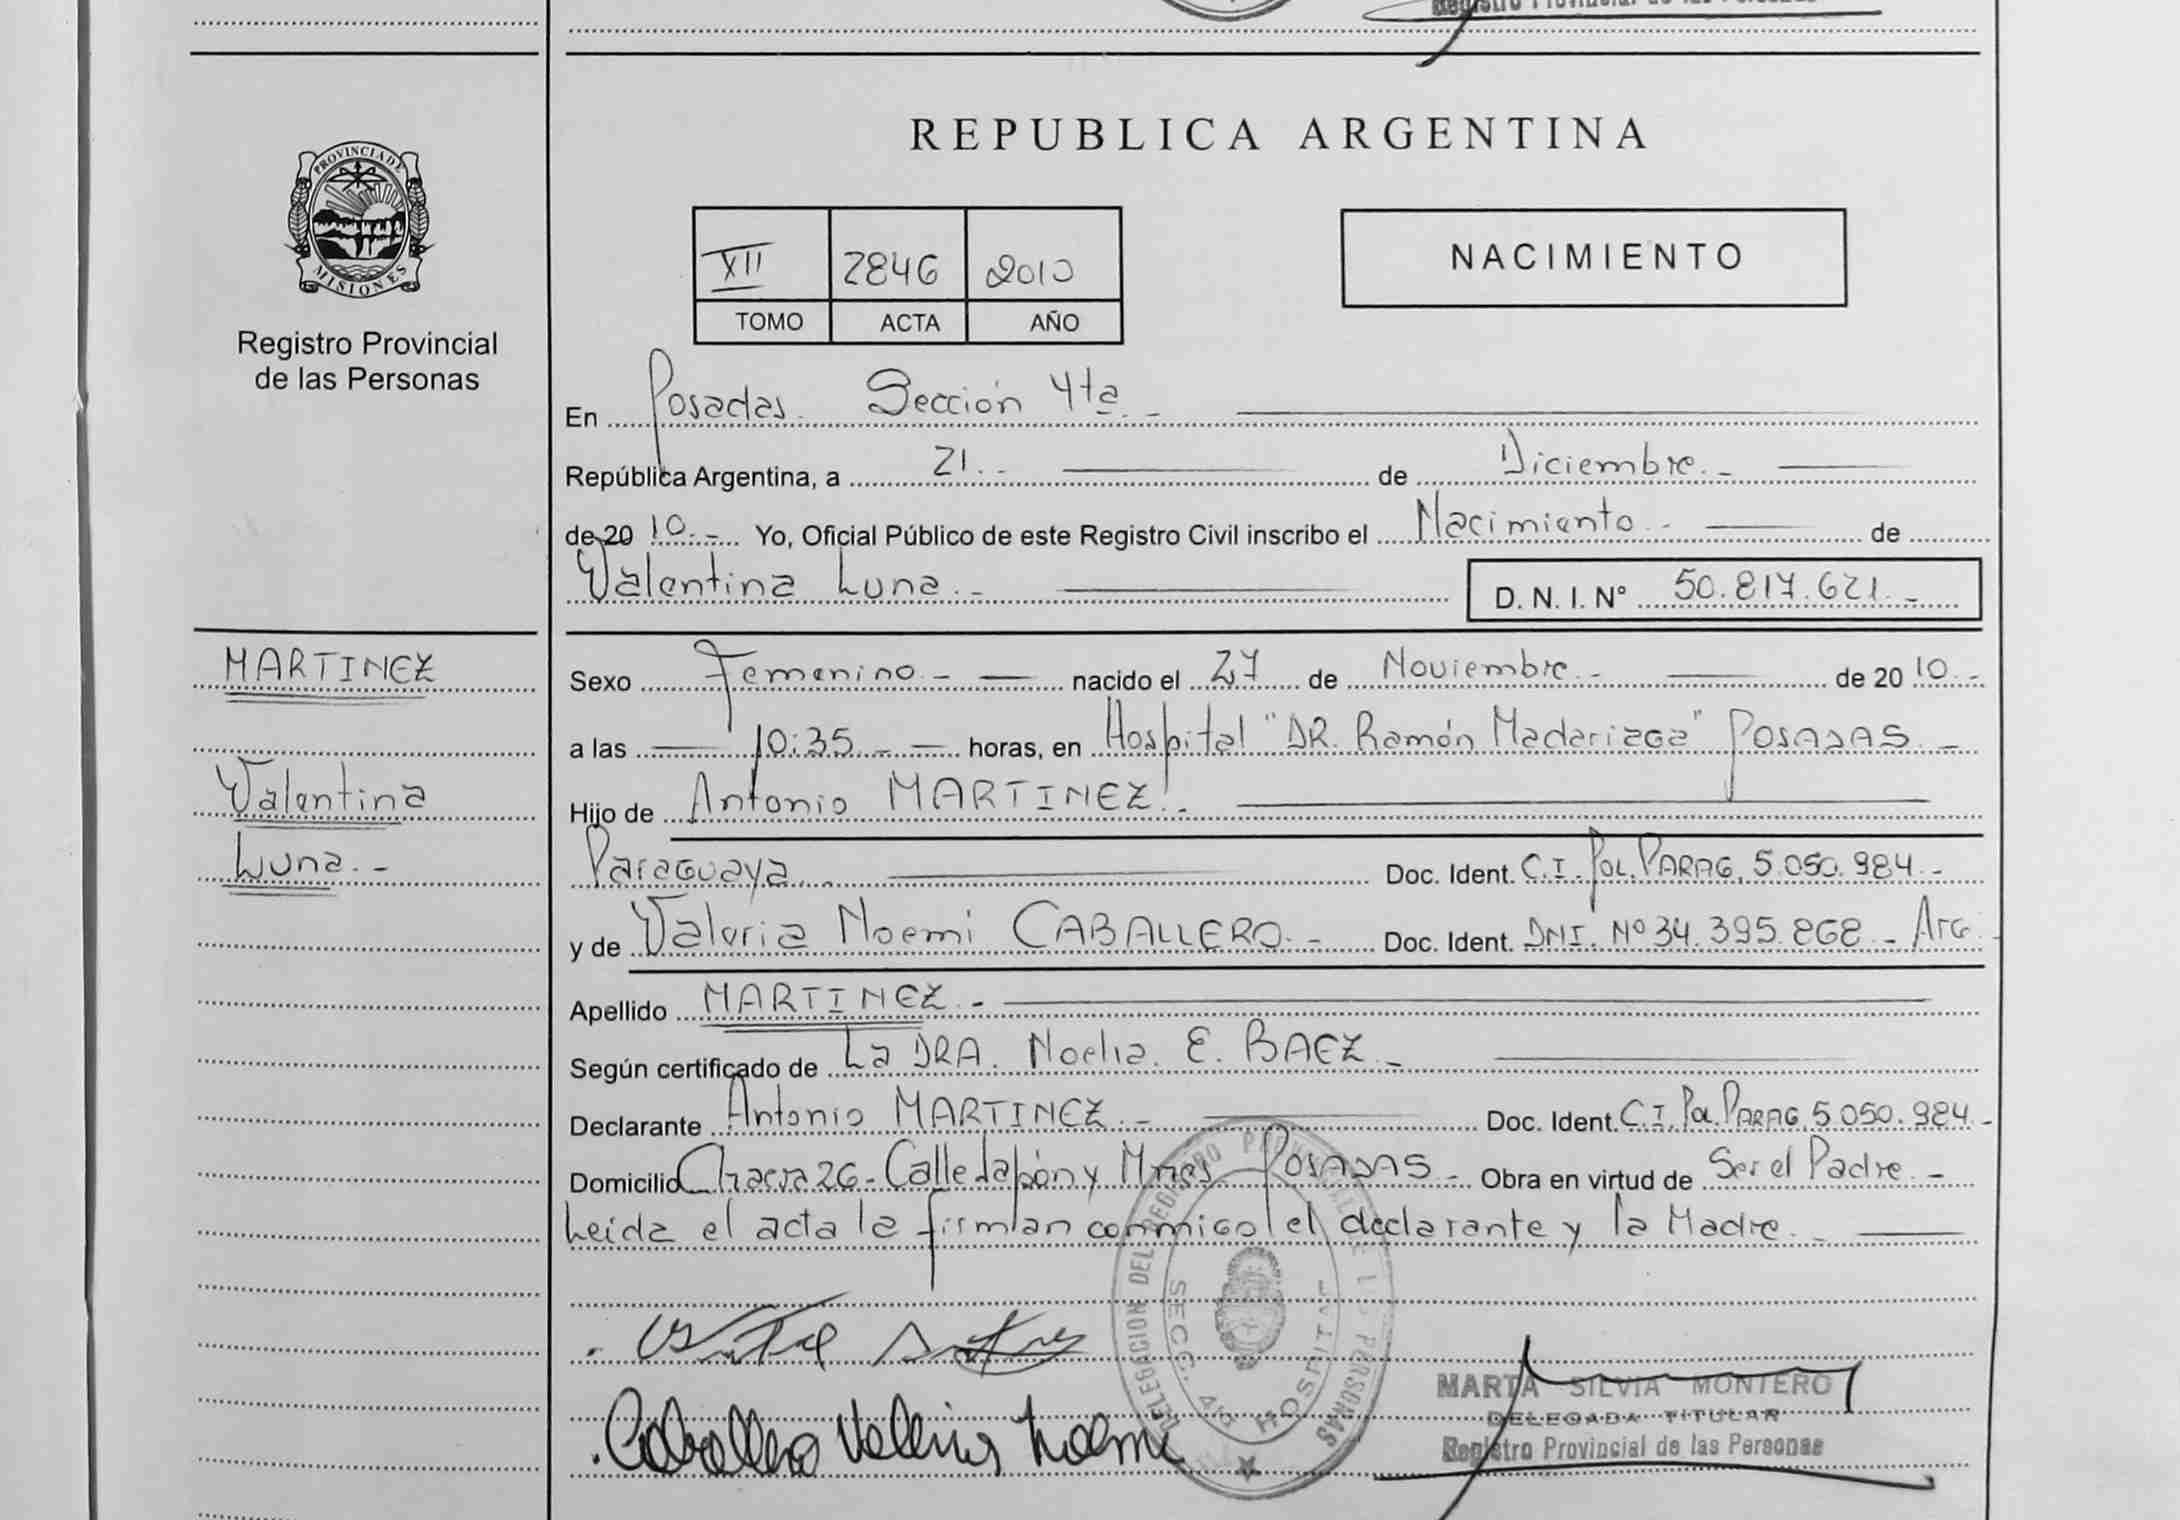 Registro Provincial de las Personas
REPUBLICA ARGENTINA
PROVINCIA DE
MISIONES
Registro Provincial
de las Personas
XII 2846 2010
TOMO ACTA AÑO
NACIMIENTO
En Posadas. Sección 4ta.-
República Argentina, a 21.- de Diciembre.-
de 20 10.- Yo, Oficial Público de este Registro Civil inscribo el Nacimiento.- de
Valentina Luna.-
D. N. I. Nº 50.817.621.-
MARTINEZ
Valentina
Luna.-
Sexo Femenino.- nacido el 27 de Noviembre.- de 20 10.-
a las 10:35.- horas, en Hospital "DR. Ramón Madariaga" POSADAS.-
Hijo de Antonio MARTINEZ.-
Paraguaya.. Doc. Ident. C.I. Pol. PARAG. 5.050.984.-
y de Valeria Noemi CABALLERO.- Doc. Ident. DNI. Nº 34.395.868.- Arg.
Apellido MARTINEZ.-
Según certificado de La DRA. Noelia. E. BAEZ.-
Declarante Antonio MARTINEZ.- Doc. Ident. C.I. Pol. PARAG. 5.050.984.-
Domicilio Chacra 26- Calle Japón y Mnes POSADAS.- Obra en virtud de Ser el Padre.-
Leída el acta la firman conmigo el declarante y la Madre.-
DELEGACION DEL REGISTRO PROVINCIAL DE LAS PERSONAS
SECC. 4ta HOSPITAL
Caballero Valeria Noemi
MARTA SILVIA MONTERO
DELEGADA TITULAR
Registro Provincial de las Personas